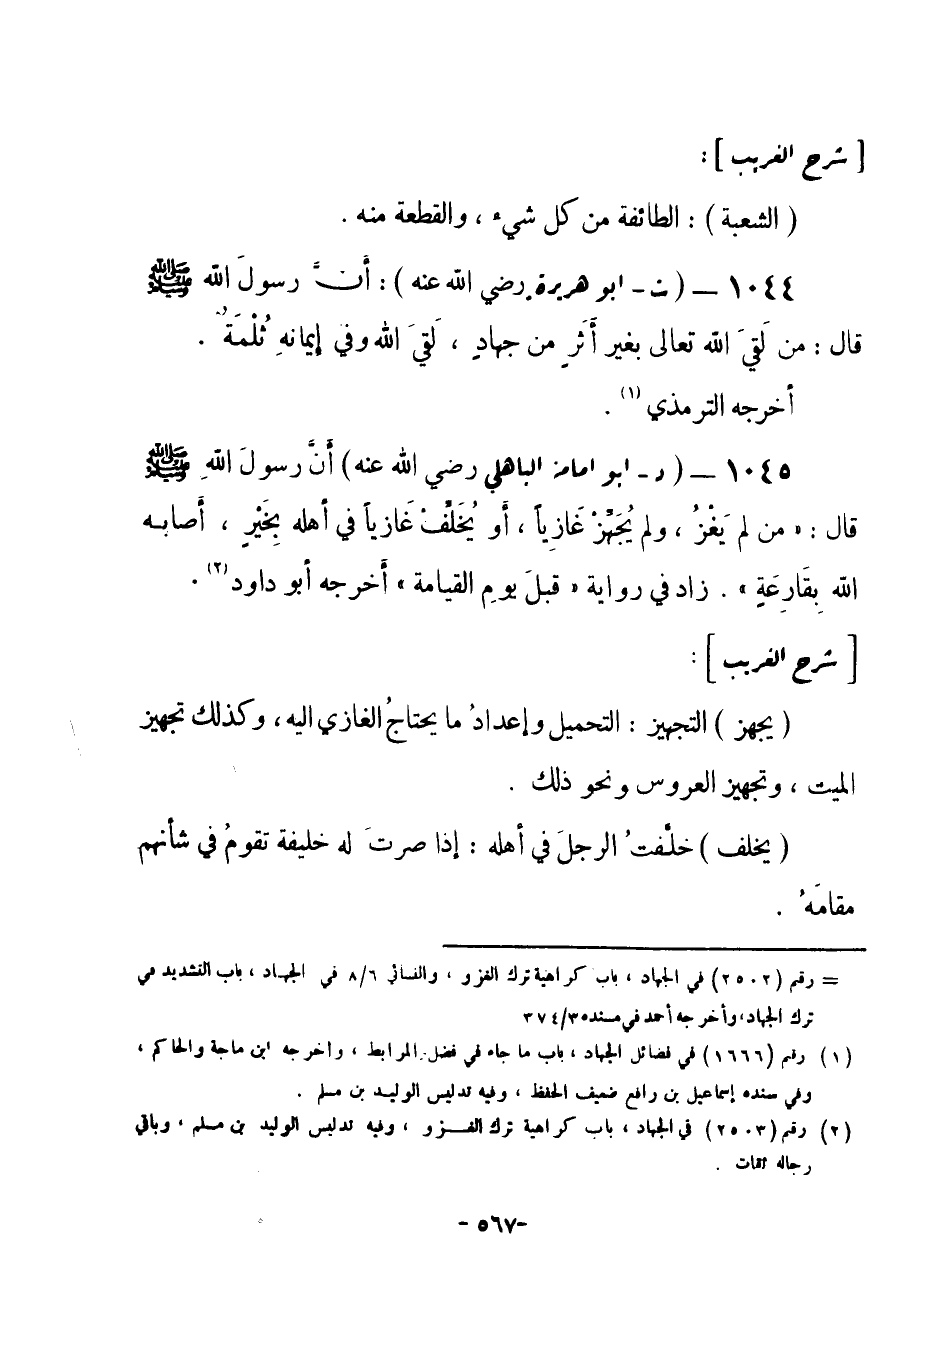 [ شرح الغريب ] :
( الشعبة ) : الطائفة من كل شيء ، والقطعة منه .
١٠٤٤ – ( ت - ابو هريرة رضي الله عنه ) : أنَّ رسولَ الله ﷺ
قال : من لَقيَ الله تعالى بغير أَثَرٍ من جهادٍ ، لَقيَ الله وفي إيمانهِ ثُلْمَةٌ .
أخرجه الترمذي (١) .
١٠٤٥ – ( د - ابو امامة الباهلي رضي الله عنه ) أنَّ رسولَ اللهِ ﷺ
قال : « من لم يَغْزُ ، ولم يُجَهِّزْ غَازِياً ، أو يُخَلِّفْ غَازياً في أهله بِخَيْرٍ ، أصابه
الله بِقَارِعَةٍ » . زاد في رواية « قبلَ يومِ القيامة » أخرجه أبو داود (٢) .
[ شرح الغريب ] :
( يجهز ) التجهيز : التحميل وإعدادُ ما يحتاجُ الغازي اليه ، وكذلك تجهيز
الميت ، وتجهيز العروس ونحو ذلك .
( يخلف ) خلَّفتُ الرجلَ في أهله : إذا صرتَ له خليفة تقومُ في شأنهم
مقامَهُ .
= رقم (٢٥٠٢) في الجهاد ، باب كراهية ترك الغزو ، والنسائي ٨/٦ في الجهاد ، باب التشديد في
ترك الجهاد، وأخرجه أحمد في مسنده ٣٧٤/٣
(١) رقم (١٦٦٦) في فضائل الجهاد ، باب ما جاء في فضل المرابط ، وأخرجه ابن ماجة والحاكم ،
وفي سنده إسماعيل بن رافع ضعيف الحفظ ، وفيه تدليس الوليد بن مسلم .
(٢) رقم (٢٥٠٣) في الجهاد ، باب كراهية ترك الغزو ، وفيه تدليس الوليد بن مسلم ، وباقي
رجاله ثقات .
- ٥٦٧ -